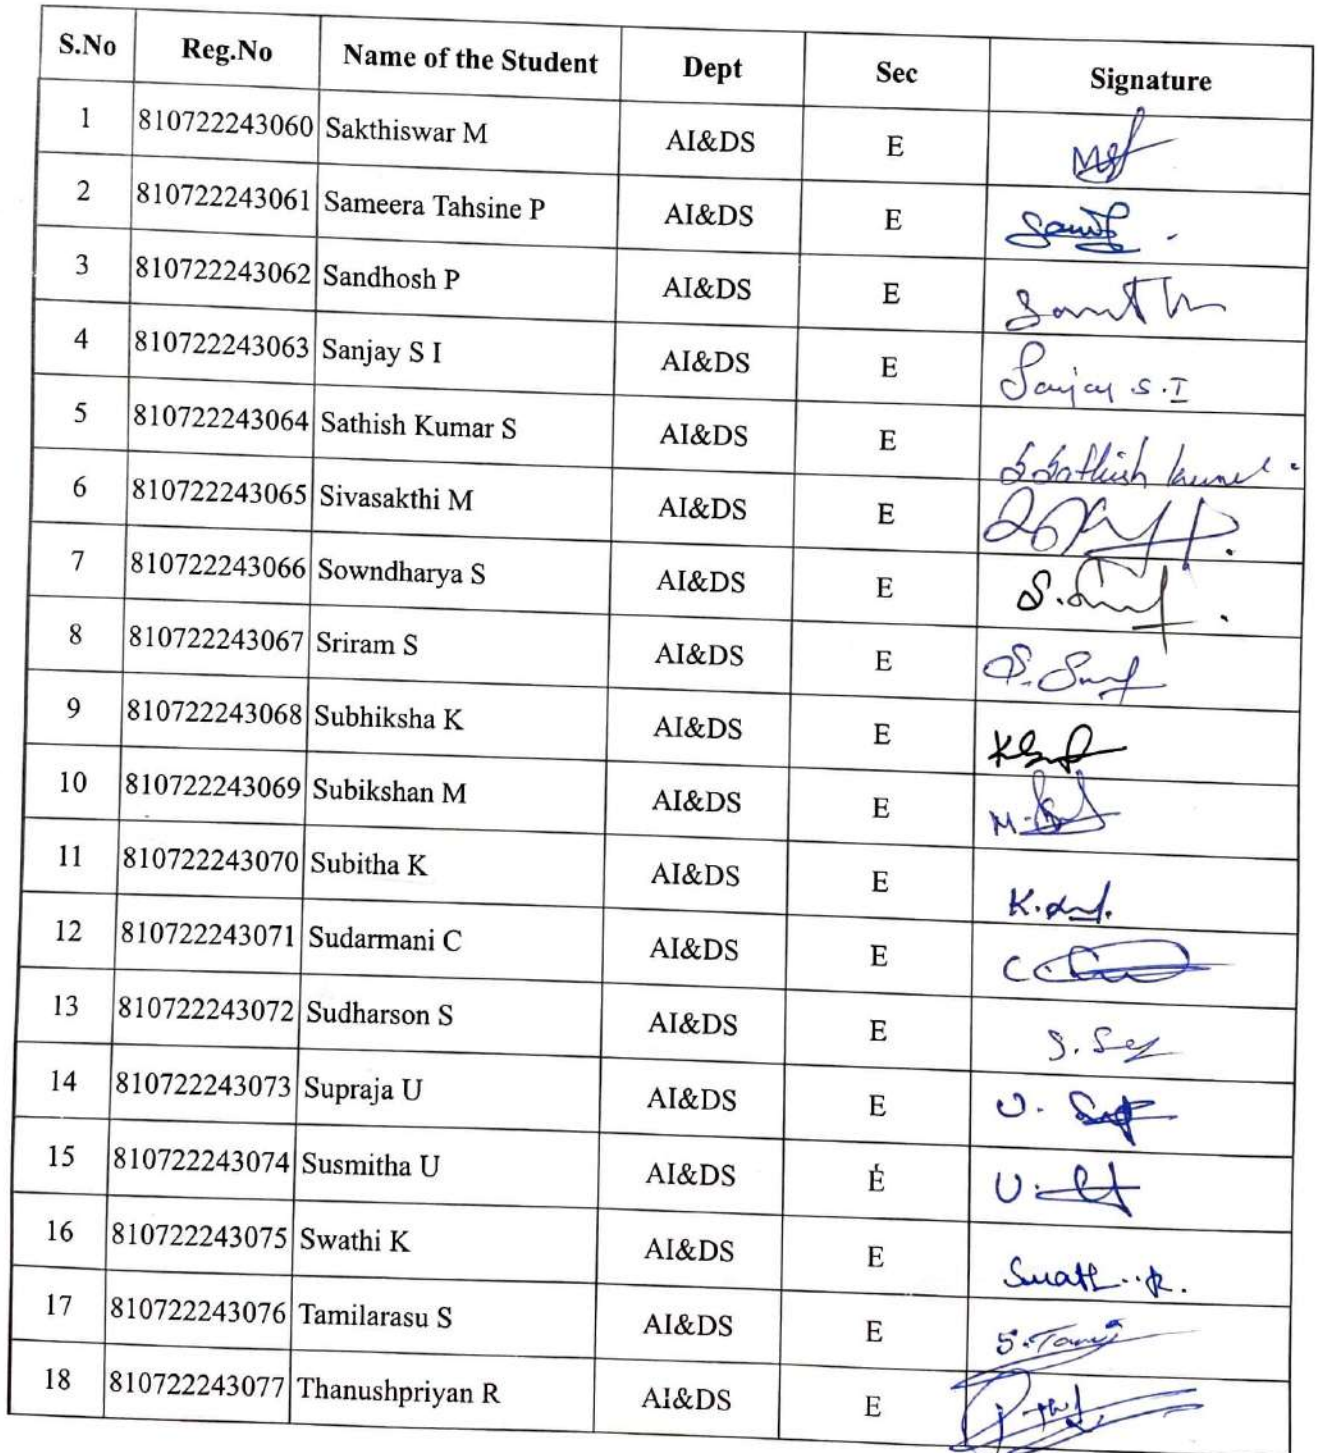 S.No Reg.No Name of the Student Dept Sec Signature
1 810722243060 Sakthiswar M AI&DS E
2 810722243061 Sameera Tahsine P AI&DS E
3 810722243062 Sandhosh P AI&DS E
4 810722243063 Sanjay S I AI&DS E Sanjay S.I
5 810722243064 Sathish Kumar S AI&DS E S Sathish kumar
6 810722243065 Sivasakthi M AI&DS E
7 810722243066 Sowndharya S AI&DS E
8 810722243067 Sriram S AI&DS E
9 810722243068 Subhiksha K AI&DS E
10 810722243069 Subikshan M AI&DS E
11 810722243070 Subitha K AI&DS E
12 810722243071 Sudarmani C AI&DS E
13 810722243072 Sudharson S AI&DS E
14 810722243073 Supraja U AI&DS E
15 810722243074 Susmitha U AI&DS E
16 810722243075 Swathi K AI&DS E
17 810722243076 Tamilarasu S AI&DS E
18 810722243077 Thanushpriyan R AI&DS E